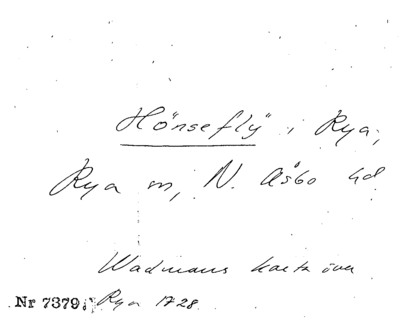 Hönseflÿ i Rya,
Rya sn, N. Åsbo hd
Wadmans karta över
Nr 7379; Rya 1728